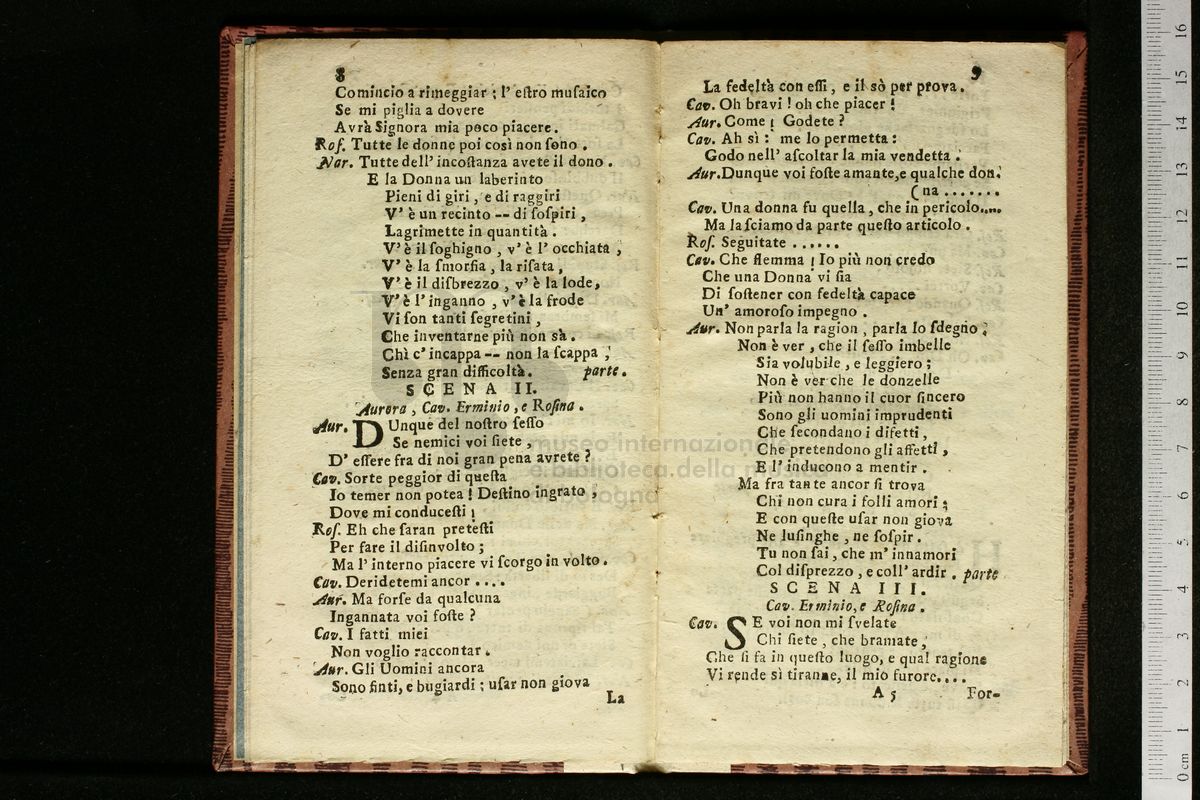 8
Comincio a rimeggiar ; l' eſtro muſaico
Se mi piglia a dovere
Avrà Signora mia poco piacere.
Roſ. Tutte le donne poi così non ſono .
Nar. Tutte dell' incoſtanza avete il dono .
E la Donna un laberinto
Pieni di giri , e di raggiri
V' è un recinto -- di ſoſpiri ,
Lagrimette in quantità .
V' è il ſoghigno , v' è l' occhiata ,
V' è la ſmorfia , la riſata ,
V' è il diſbrezzo , v' è la lode,
V' è l' inganno , v' è la frode
Vi ſon tanti ſegretini ,
Che inventarne più non sà .
Chì c' incappa -- non la ſcappa ,
Senza gran difficoltà. parte.
SCENA II.
Aurora , Cav. Erminio , e Roſina .
Aur. DUnque del noſtro ſeſſo
Se nemici voi ſiete ,
D' eſſere fra di noi gran pena avrete ?
Cav. Sorte peggior di queſta
Io temer non potea ! Deſtino ingrato ,
Dove mi conduceſti ¡
Roſ. Eh che ſaran preteſti
Per fare il diſinvolto ;
Ma l' interno piacere vi ſcorgo in volto.
Cav. Deridetemi ancor ....
Aur. Ma forſe da qualcuna
Ingannata voi foſte ?
Cav. I fatti miei
Non voglio raccontar .
Aur. Gli Uomini ancora
Sono finti, e bugiardi ; uſar non giova
La
9
La fedeltà con eſſi , e il sò per prova.
Cav. Oh bravi ! oh che piacer !
Aur. Come ¡ Godete ?
Cav. Ah sì : me lo permetta :
Godo nell' aſcoltar la mia vendetta .
Aur. Dunque voi foſte amante, e qualche don-
( na .......
Cav. Una donna fu quella , che in pericolo.....
Ma laſciamo da parte queſto articolo .
Roſ. Seguitate ......
Cav. Che flemma ! Io più non credo
Che una Donna vi ſia
Di ſoſtener con fedeltà capace
Un' amoroſo impegno .
Aur. Non parla la ragion , parla lo ſdegno ;
Non è ver , che il ſeſſo imbelle
Sia volubile , e leggiero ;
Non è ver che le donzelle
Più non hanno il cuor ſincero
Sono gli uomini imprudenti
Che ſecondano i difetti ,
Che pretendono gli affetti ,
E l' inducono a mentir .
Ma fra tante ancor ſi trova
Chi non cura i folli amori ;
E con queſte uſar non giova
Ne luſinghe , ne ſoſpir .
Tu non ſai , che m' innamori
Col diſprezzo , e coll' ardir . parte
SCENA III.
Cav. Erminio, e Roſina .
Cav. SE voi non mi ſvelate
Chi ſiete , che bramate ,
Che ſi fa in queſto luogo, e qual ragione
Vi rende sì tiranne, il mio furore....
A 5 For-
museo internazionale
e biblioteca della musica
di bologna
0 cm 1 2 3 4 5 6 7 8 9 10 11 12 13 14 15 16